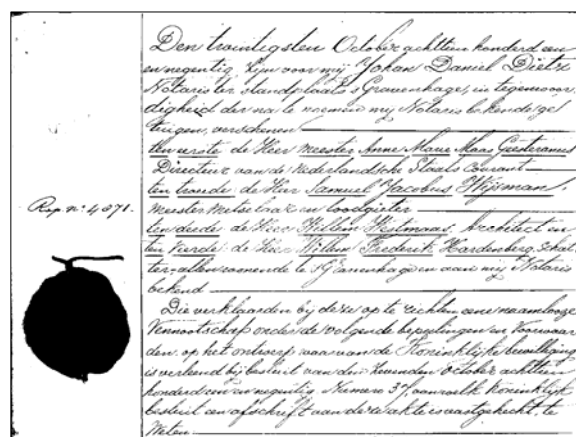 Den twintigsten October achttien honderd een
en negentig, zijn voor mij Johan Daniel Dietz
Notaris ter standplaats 's Gravenhage, in tegenwoor-
digheid der na te noemen mij Notaris bekende ge-
tuigen, verschenen
ten eerste de Heer meester Anne Maas Geesteranus
Directeur van de Nederlandsche Staats courant
ten tweede de Heer Samuel Jacobus Hijman,
meester metselaar en loodgieter
Rep. no. 4071.
ten derde de Heer Willem Westmaas, Architect en
ten vierde de Heer Willem Frederik Hardenberg,
ter, allen wonende te 's Gravenhage en aan mij Notaris
bekend
Die verklaarden bij deze op te richten eene naamlooze
Vennootschap onder de volgende bepalingen en voorwaar-
den, op het ontwerp waarvan de Koninklijke bewilliging
is verleend bij besluit van den zevenden October achttien
honderd een en negentig Numero 37, van welk Koninklijk
besluit een afschrift aan deze akte is vastgehecht, te
Weten